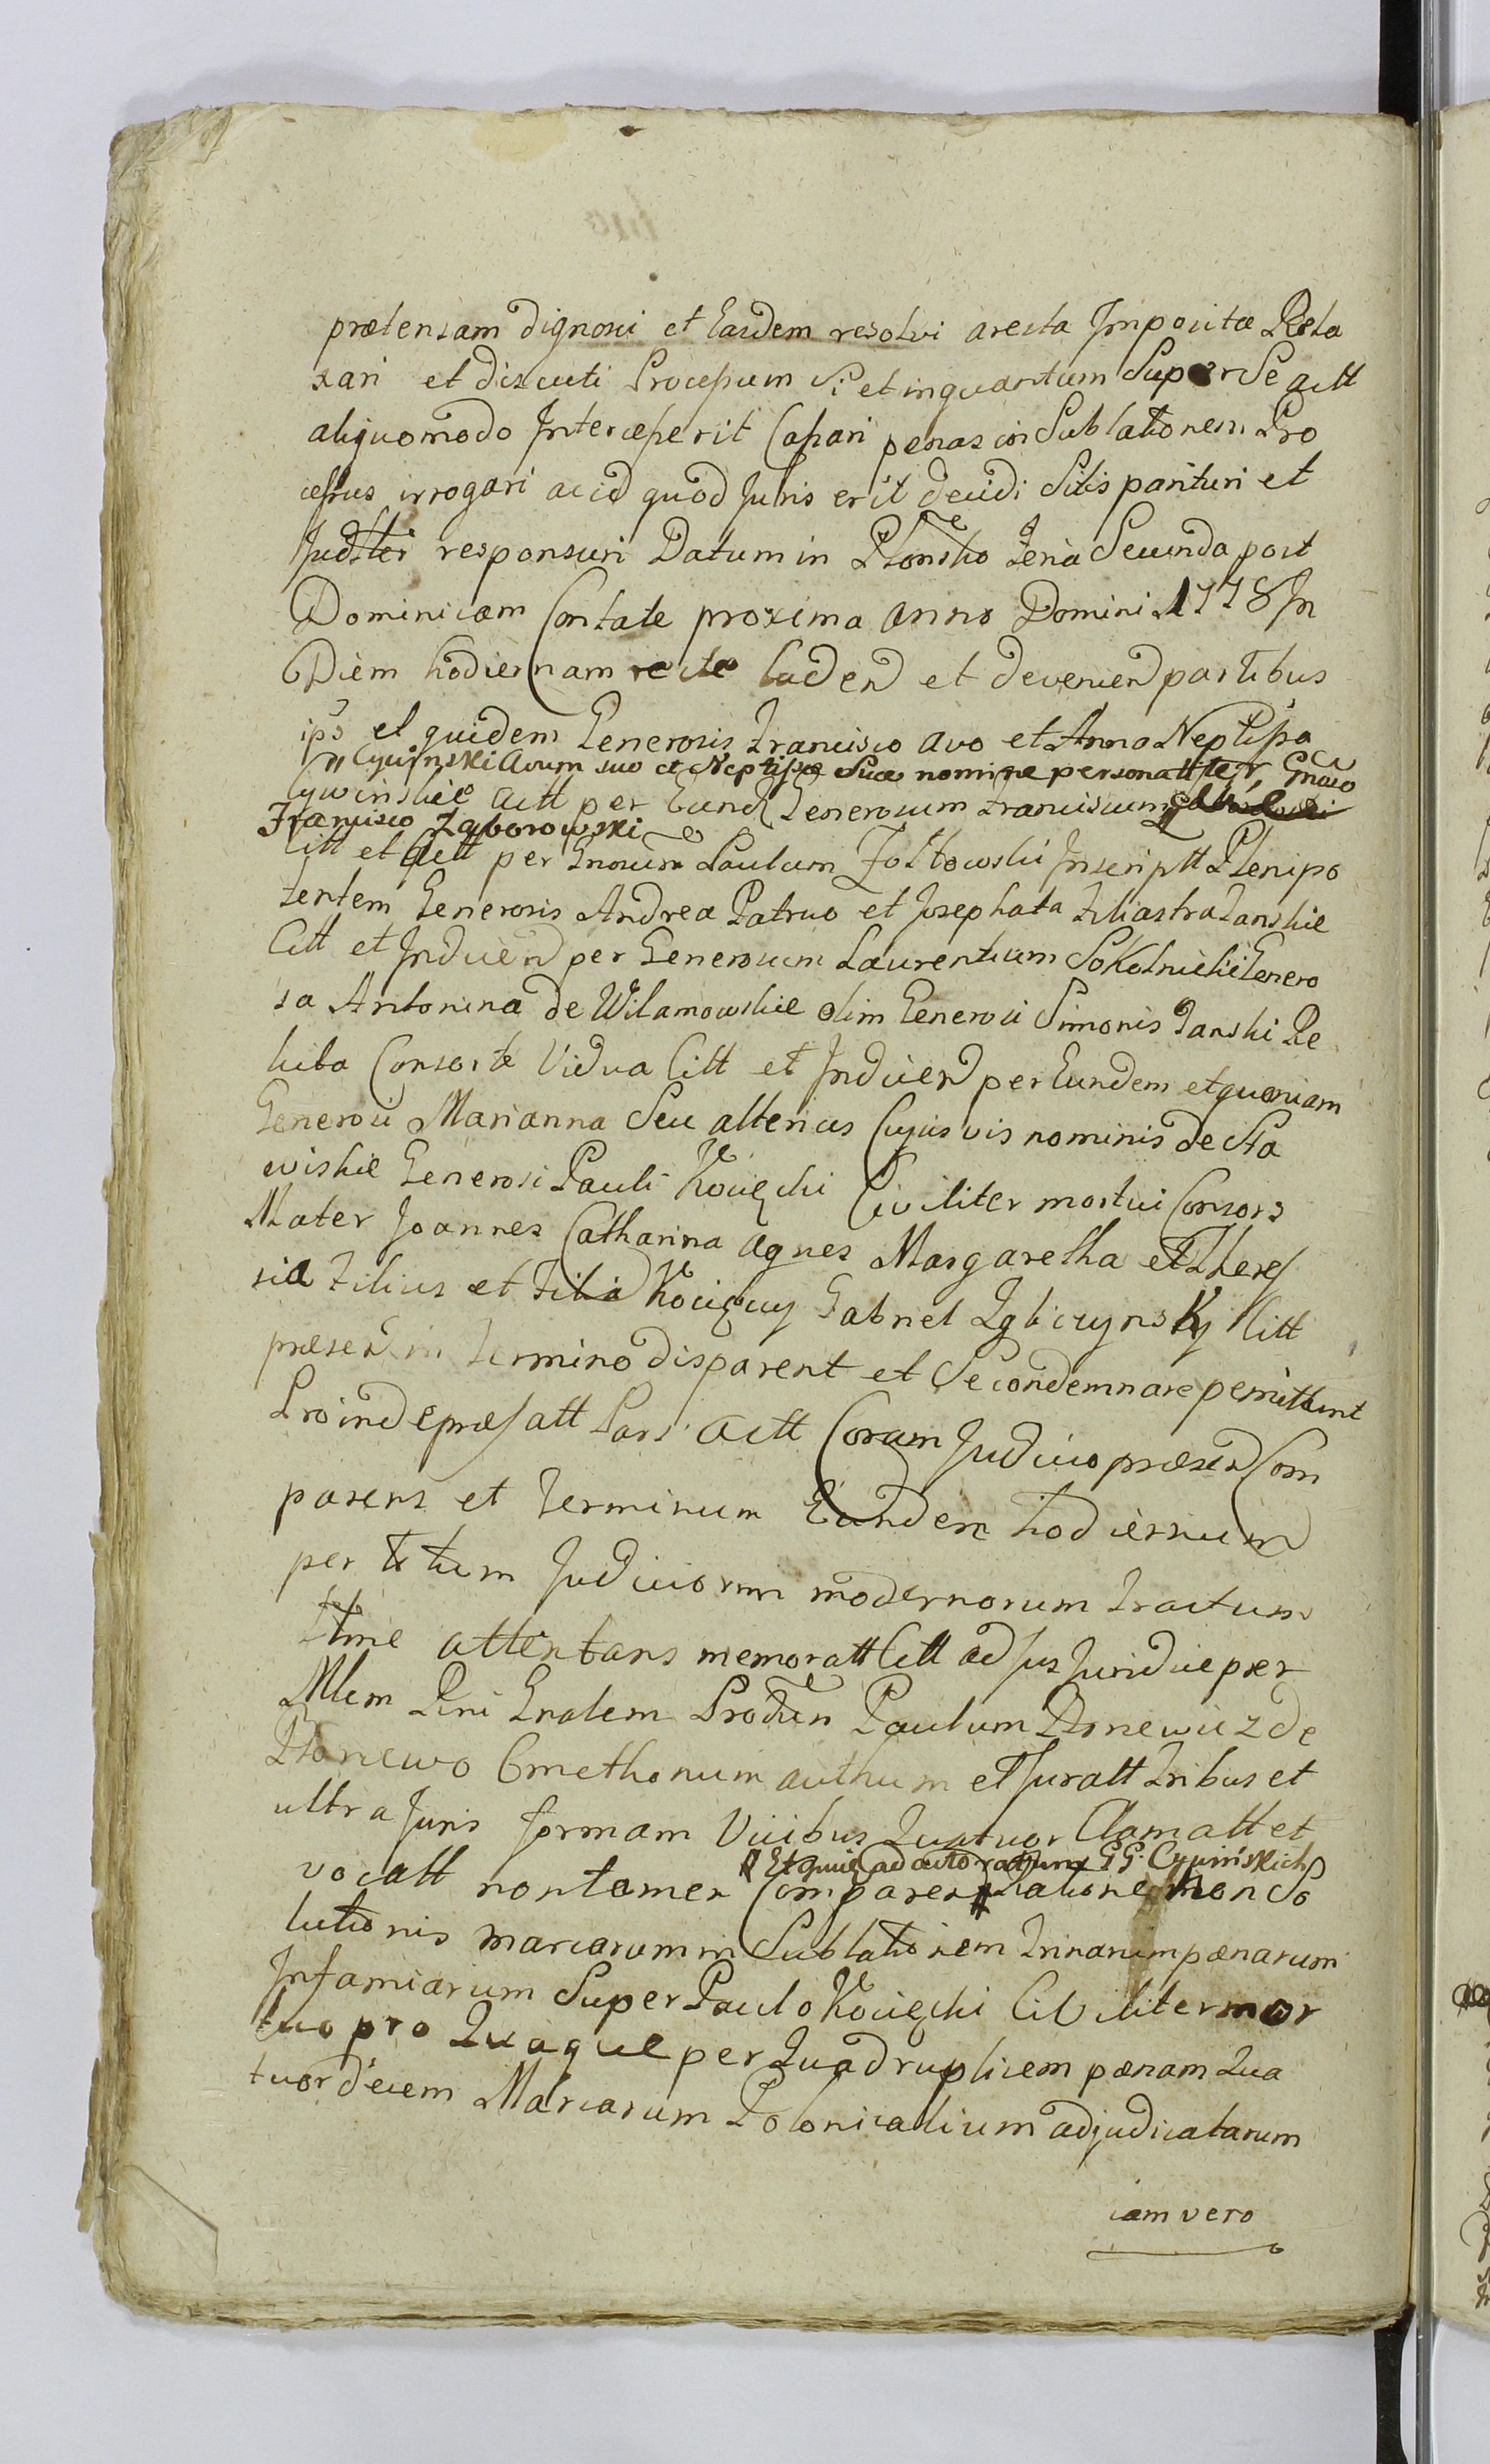 prætensam dignosci et Easdem resolvi aresta Imposita Rela
xari et discuti Processum Si et inquantum Super Se actt
aliquomodo Interceperit Cassari penas in Sublationem Pro
cessus irrogari ac id quod Juris erit decidi Sitis parituri et
Judltei responsuri Datum in Płonsko Feria Secunda post
Dominicam Cantate proxima anno Domini 1778 In
Diem hodiernam recte Caden et devenien partibus
ips et quidem Generosis Francisco avo et Anna Neptissa
Cywinski avum suo et Neptissæ Suæ nomine personallter, Gnoso
Cywinskie actt per Eund Generosum Franciscum
Francisco Zaborowski
Citt et actt per Gnosum Paulum Zołtowski Inscriptt Plenipo
tentem Generosis Andrea Patruo et Josephata Filiastra Janskie
Citt et Inducen per Generosum Laurentium Sokolnicki Genero
sa Antonina de Wilamowskie olim Generosi Simonis Janski Re
licta Consorte Vidua Citt et Inducen per Eundem et quoniam
Generosi Marianna Seu alterius Cujus vis nominis de Sta
wiskie Generosi Pauli Kocięcki Civiliter mortui Consors
Mater Joannes Catharina Agnes Margaretha et Theres
sia Filius et Filiæ Kocięccy Gabriel Zgliczynsky Citt
præsen in Termino disparent et Se condemnare permittunt
Proinde præfatt Pars actt Coram Judicio præsen Com
parens et Terminum Eundem hodiernum
per totum Judiciorum modernorum Tractum
Ltme attentans memoratt Citt ad Jus Juridice per
Mlem Rni Gnalem Prottien Paulum Ronewicz de
Ronewo Cmethonum authum et Juratt Tribus et
ultra Juris formam Vicibus Quatuor Clamatt et
Et quid ad actoratum GG. Cywinskich
vocatt non tamen Comparen Ratione non So
lutionis marcarum in Sublationem Trinarum pænarum
Infamiarum Super Paulo Kocięcki Civiliter mor
tuo pro Quaque per Quadruplicem pænam Qua
tuordecem Marcarum Polonicalium adjudicatarum
iam vero